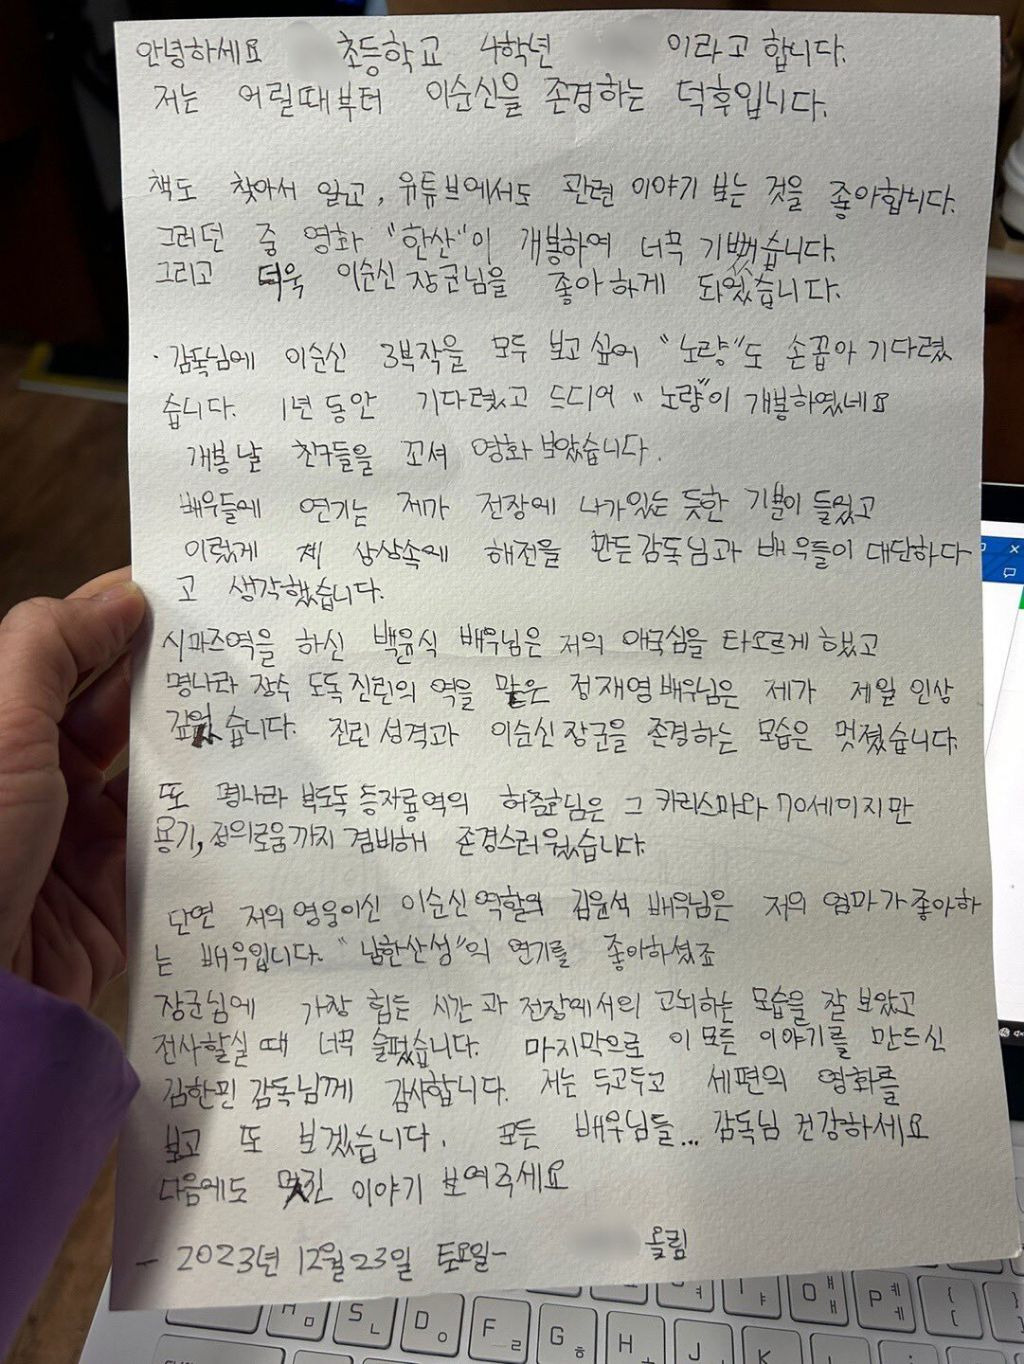 안녕하세요 초등학교 4학년 이라고 합니다.
저는 어릴때부터 이순신을 존경하는 덕후입니다.
책도 찾아서 읽고, 유튜브에서도 관련 이야기 보는 것을 좋아합니다.
그러던 중 영화 "한산"이 개봉하여 너무 기뻤습니다.
그리고 더욱 이순신 장군님을 좋아하게 되었습니다.
감독님에 이순신 3부작을 모두 보고 싶어 "노량"도 손꼽아 기다렸
습니다. 1년 동안 기다렸고 드디어 "노량"이 개봉하였네요
개봉날 친구들을 꼬셔 영화 보았습니다.
배우들에 연기는 제가 전장에 나가있는 듯한 기분이 들었고
이렇게 제 상상속에 해전을 만든 감독님과 배우들이 대단하다
고 생각했습니다.
시마즈역을 하신 백윤식 배우님은 저의 애국심을 타오르게 했고
명나라 장수 도독 진린의 역을 맡은 정재영 배우님은 제가 제일 인상
깊었습니다. 진린 성격과 이순신 장군을 존경하는 모습은 멋졌습니다.
또 명나라 부도독 등자룡역의 허준호님은 그 카리스마와 70세이지만
용기, 정의로움까지 겸비해 존경스러웠습니다.
단연 저의 영웅이신 이순신 역할의 김윤석 배우님은 저의 엄마가 좋아하
는 배우입니다. "남한산성"의 연기를 좋아하셨죠
장군님에 가장 힘든 시간과 전장에서의 고뇌하는 모습을 잘 보았고
전사할실 때 너무 슬펐습니다. 마지막으로 이 모든 이야기를 만드신
김한민 감독님께 감사합니다. 저는 두고두고 세편의 영화를
보고 또 보겠습니다. 모든 배우님들... 감독님 건강하세요
다음에도 멋진 이야기 보여주세요
- 2023년 12월 23일 토요일- 올림
S ㄴ D ㅇ F ㄹ G ㅎ H J K P ㅔ ㅖ O ㅐ ㅒ { [